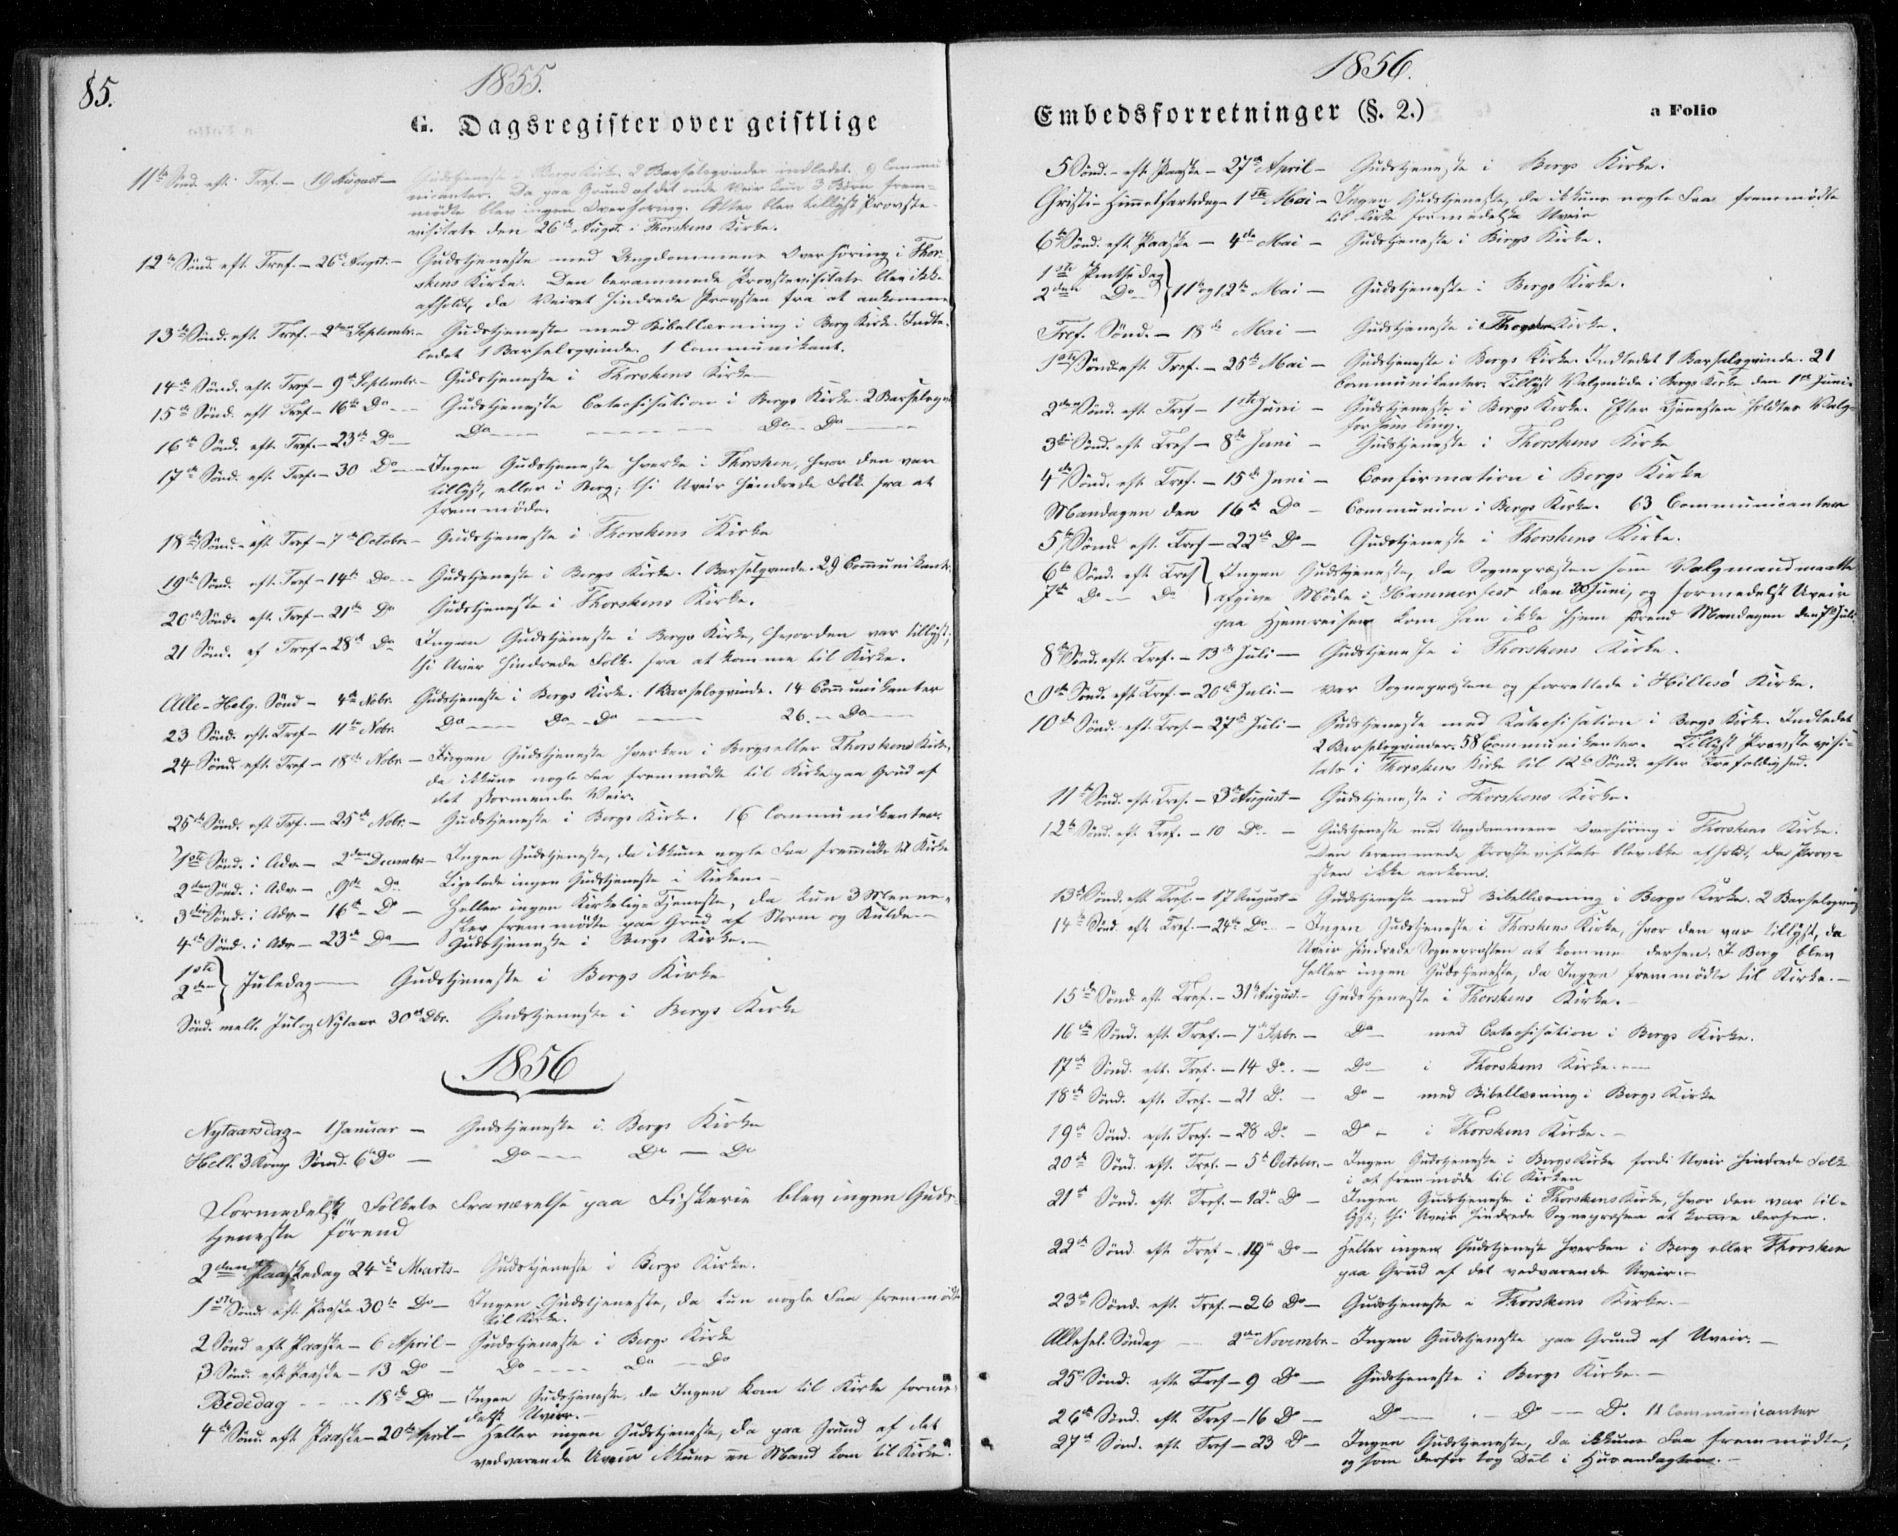 85.
1855.
G. Dagsregister over geistlige
11te Sønd. eft. Tref. – 19 August – Gudstjeneste i Bergs Kirke. 2 Barselqvinder indledet. 9 Commu-
nicanter. Da paa Grund af det onde Veir kun 3 Børn frem-
mødte blev ingen Overhøring. Atter blev tillyst Provste-
visitats den 26de Augst. i Thorskens Kirke.
12te Sønd. eft. Tref. – 26de Augst. – Gudstjeneste med Ungdommens Overhøring i Thor-
skens Kirke. Den berammede Provstevisitats blev ikke
afholdt, da Veiret hindrede Provsten fra at ankomme
13de Sønd. eft. Tref. – 2den Septembr. – Gudstjeneste med Bibellæsning i Berg Kirke. Indle-
ledet 1 Barselqvinde. 1 Communikant.
14de Sønd. eft. Tref. – 9de Septembr. – Gudstjeneste i Thorskens Kirke
15de Sønd. eft. Tref. – 16de Do – Gudstjeneste Catechisation i Bergs Kirke. 2 Barselqv.
16de Sønd. eft. Tref. – 23de Do – Do – – Do – Do –
17de Sønd. eft. Tref. – 30 Do – Ingen Gudstjeneste hverke i Thorsken, hvor den var
tillyst, eller i Berg; thi Uveir hindrede Folk fra at
fremmøde.
18de Sønd. eft. Tref. – 7de October. – Gudstjeneste i Thorskens Kirke
19de Sønd. eft. Tref. – 14de Do – Gudstjeneste i Bergs Kirke. 1 Barselqvinde. 29 Communikanter.
20de Sønd. eft. Tref. – 21de Do Gudstjeneste i Thorskens Kirke.
21 Sønd. ef. Tref. – 28de Do Ingen Gudstjeneste i Bergs Kirke, hvor den var tillyst;
thi Uveir hindrede Folk fra at komme til Kirke.
Alle-Helg. Sønd – 4de Nobr. Gudstjeneste i Bergs Kirke. 1 Barselqvinde. 14 Communikanter
23 Sønd. eft. Tref. – 11te Nobr. Do – Do – Do – 26. – Do –
24 Sønd. eft. Tref. – 18de Nobr. – Ingen Gudstjeneste hverken i Bergs eller Thorskens Kirke,
da ikkuns nogle Faa fremmødte til Kirke paa Grund af
det stormende Veir.
25de Sønd. eft. Tref. – 25de Nobr. – Gudstjeneste i Bergs Kirke. 16 Communikanter.
1ste Sønd. i Adv. – 2den Decembr. – Ingen Gudstjeneste, da ikkuns nogle Faa fremmødte til Kirke
2den Sønd. i Adv. – 9de Do. Ligelede ingen Gudstjeneste i Kirken. –
3die Sønd. i Adv. – 16de Do – Heller ingen Kirkelig Tjeneste, da kun 3 Menne-
sker fremmødte paa Grund af Storm og Kulde. –
4de Sønd. i Adv. – 23de Do – Gudstjeneste i Bergs Kirke. –
1ste
2den } Juledag – Gudstjeneste i Bergs Kirke
Sønd. mell. Jul og Nytaar 30de Dbr. Gudstjeneste i Bergs Kirke
1856
Nytaarsdag – 1 Januar – Gudstjeneste i Bergs Kirke
Hell. 3 Kong. Sønd. 6te Do – Do – Do – Do
Formedelst Folkets Fraværelse paa Fiskerie blev ingen Guds-
tjeneste førend
2den Paaskedag 24de Marts – Gudstjeneste i Bergs Kirke.
1ste Sønd. eft. Paaske 30te Do – Ingen Gudstjeneste, da kun nogle Faa fremmødte
til Kirke.
2 Sønd eft Paaske – 6 April – Gudstjeneste i Bergs Kirke
3 Sønd. eft. Paaske – 13 Do – Do – Do – Do
Bededag – 18de Do – Ingen Gudstjeneste, da Ingen kom til Kirke forme-
delst Uveir. –
4de Sønd. eft. Paaske – 20de April – Heller ingen Gudstjeneste, da paa Grund af det
vedvarende Uveir ikkuns en Mand kom til Kirke.
1856.
Embedsforretninger (§. 2.)
a Folio
5 Sønd. – eft. Paaske – 27de April – Gudstjeneste i Bergs Kirke.
Christi-Himmelfartsdag – 1ste Mai – Ingen Gudstjeneste, da ikkuns nogle Faa fremmødte
til Kirke formedelst Uveir
6te Sønd. eft. Paaske – 4de Mai – Gudstjeneste i Bergs Kirke.
1ste Pintsedag
2den Do } 11te og 12te Mai – Gudstjeneste i Bergs Kirke.
Tref. Sønd. – 18de Mai – Gudstjeneste i Thorskens Kirke.
1ste Sønd. eft. Tref. – 25de Mai – Gudstjeneste i Bergs Kirke. Indledet 1 Barselqvinde. 21
Communikanter. Tillyst Valgmøde i Bergs Kirke den 1ste Juni.
2den Sønd. eft. Tref. – 1ste Juni – Gudstjeneste i Bergs Kirke. Efter Tjenesten holdtes Valg-
forsamling.
3die Sønd. eft. Tref. – 8de Juni – Gudstjeneste i Thorskens Kirke
4de Sønd. eft. Tref. – 15de Juni – Confirmation i Bergs Kirke
Mandagen den 16de Do – Communion i Bergs Kirke. 63 Communicanter
5te Sønd. eft. Tref – 22de Do – Gudstjeneste i Thorskens Kirke.
6te Sønd. eft. Tref
7de Do – Do } Ingen Gudstjeneste, da Sognepræsten som Valgmand maatte
afgive Møde i Hammerfest den 30 Juni, og formedelst Uveir
paa Hjemreisen kom han ikke hjem førend Mandagen den 7de Juli.
8de Sønd. eft. Tref. – 13de Juli – Gudstjeneste i Thorskens Kirke.
9de Sønd. eft. Tref. – 20de Juli – var Sognepræsten og forrettede i Hillesø Kirke.
10de Sønd. eft. Tref. – 27de Juli – Gudstjeneste med Katechisation i Bergs Kirke. Indledet
2 Barselqvinder. 58 Communikanter. Tillyst Provstevisi-
tats i Thorskens Kirke til 12te Sønd. efter Trefoldighed.
11te Sønd. eft. Tref. – 3de August – Gudstjeneste i Thorskens Kirke.
12te Sønd. eft. Tref. – 10 Do – Gudstjeneste med Ungdommens Overhøring i Thorskens Kirke.
Den berammede Provstevisitats blev ikke afholdt, da Prov-
sten ikke ankom.
13de Sønd. eft. Tref. – 17 August – Gudstjeneste med Bibellæsning i Bergs Kirke. 2 Barselqvind.
14de Sønd. eft. Tref. – 24de Do – Ingen Gudstjeneste i Thorskens Kirke, hvor den var tillyst, da
Uveir hindrede Sognepræsten at komme derhen. I Berg blev
heller ingen Gudstjeneste, da Ingen fremmødte til Kirke. –
15de Sønd. eft. Tref. – 31te August. – Gudstjeneste i Thorskens Kirke. –
16de Sønd. eft. Tref. – 7de Sepbr. – Do – med Catechisation i Bergs Kirke.
17de Sønd. eft. Tref. – 14 Do – Do – i Thorskens Kirke. –
18de Sønd. eft. Tref. – 21 D. – Do – med Bibellæsning i Bergs Kirke
19de Sønd. eft. Tref. – 28 Do – Do – i Thorskens Kirke. –
20de Sønd. eft. Tref. – 5te October. – Ingen Gudstjeneste i Bergs Kirke fordi Uveir hindrede Folk
i at fremmøde til Kirken
21de Sønd. eft. Tref. – 12te Do – Ingen Gudstjeneste i Thorskens Kirke, hvor den var til-
lyst; thi Uveir hindrede Sognepræsten at komme derhen.
22de Sønd. eft. Tref – 19de Do – Heller ingen Gudstjeneste hverken i Berg eller Thorsken
paa Grund af det vedvarende Uveir. –
23de Sønd. eft. Tref. – 26 Do – Gudstjeneste i Thorskens Kirke. –
Allehel. Søndag – 2den Novembr. – Ingen Gudstjeneste paa Grund af Uveir. –
25de Sønd. eft. Tref – 9 Do – Gudstjeneste i Bergs Kirke. –
26de Sønd. eft. Tref – 16 D – Do – Do – D. 11 Communicanter
27de Sønd. eft. Tref – 23 D – Ingen Gudstjeneste, da ikkuns Faa fremmødte,
og som derfor tog Deel i Huusandagten. –